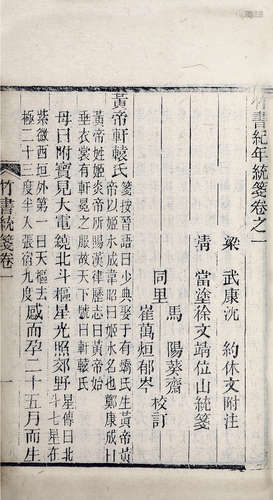 竹書紀年統箋卷之一
梁 武康沈 約休文附注
清 當塗徐文靖位山統箋
馬 陽葵齋
同里 校訂
崔萬烜郁岑
黃帝軒轅氏 箋按晉語曰少典娶于有蟜氏生黃帝炎
帝以姬水成韋昭曰姬水名也鄭康成曰
黃帝姓姬炎帝所賜漢律歷志曰黃帝始
垂衣裳有軒冕之服故天下號曰軒轅氏
母曰附寶見大電繞北斗樞星光照郊野 星傳曰北
斗七星在
紫微西垣外第一曰天樞去
極二十三度半入張宿九度 感而孕二十五月而生
竹書統箋卷一